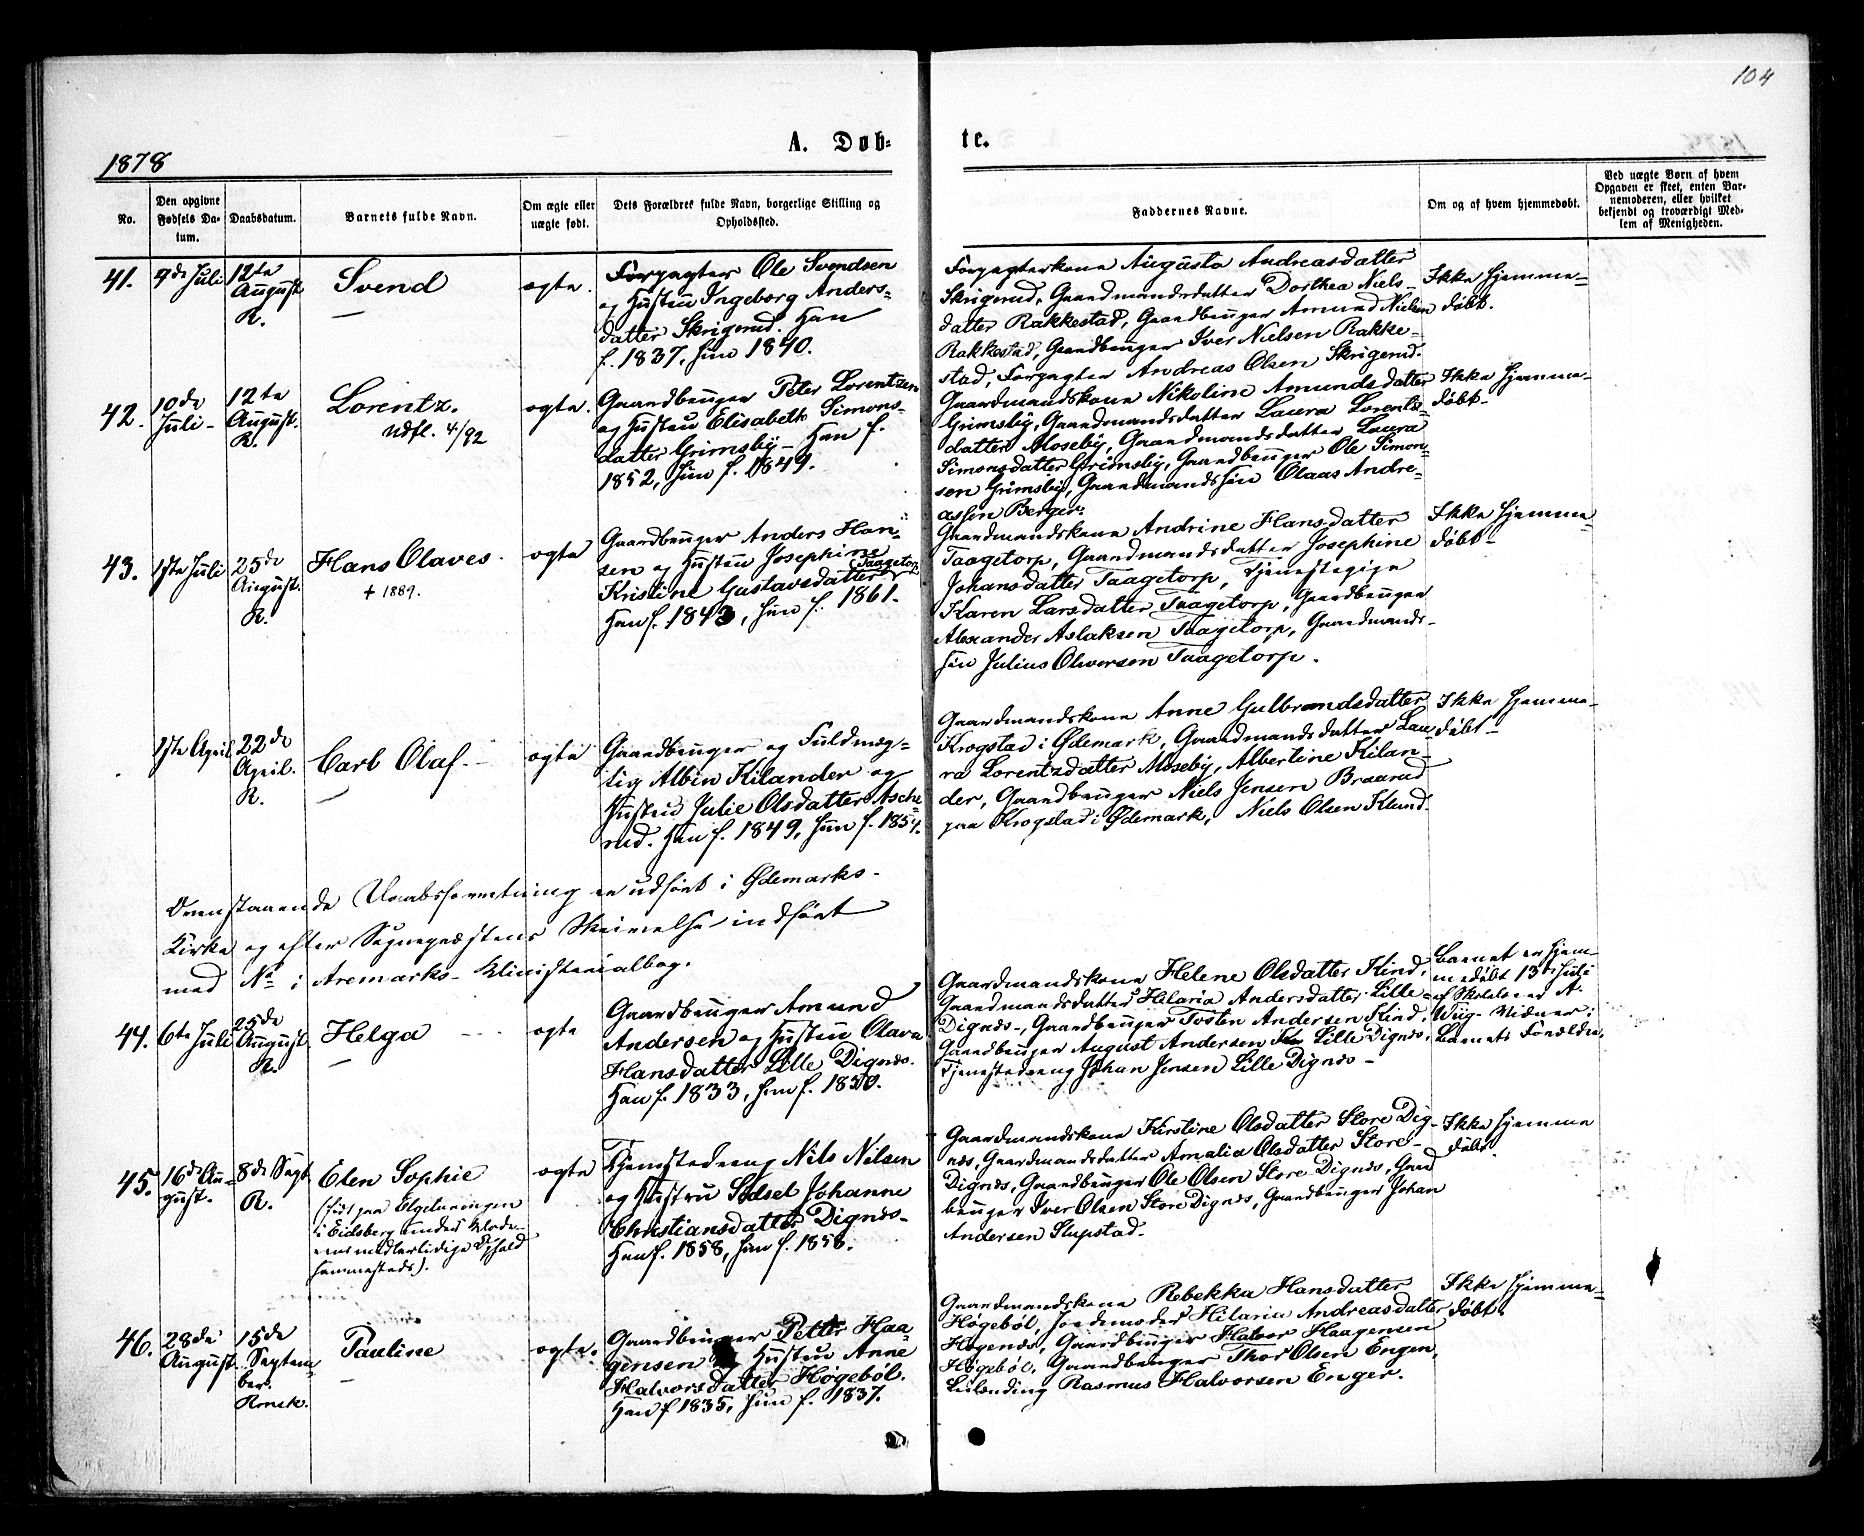 104
1878
A. Døb-
te.
No.
Den opgivne
Fødsels Da-
tum.
Daabsdatum.
Barnets fulde Navn.
Om ægte eller
uægte født.
Dets Forældres fulde Navn, borgerlige Stilling og
Opholdssted.
Faddernes Navne.
Om og af hvem hjemmedøbt.
Ved uægte Børn af hvem
Opgaven er skeet, enten Bar-
nemoderen, eller hvilket
bekjendt og troværdigt Med-
lem af Menigheden.
41.
9de Juli
12te
August
R.
Svend
ægte.
Forpagter Ole Svendsen
og Hustru Ingeborg Anders-
datter Skrigerud. Han
f. 1837, hun 1840.
Forpagterkone Augusta Andreasdatter
Skrigerud, Gaardmandsdatter Dorthea Niels-
datter Rakkestad, Gaardbruger Amund Nielsen
Rakkestad, Gaardbruger Iver Nielsen Rakke-
stad, Forpagter Andreas Olsen Skrigerud.
Ikke hjemme-
døbt.
42.
10de
Juli
12te
August.
R.
Lorentz.
Udfl. 4/92
ægte.
Gaardbruger Peter Lorentzen
og Hustru Elisabeth Simons-
datter Grimsby. Han f.
1852, hun f. 1849.
Gaardmandskone Nikoline Amundsdatter
Grimsby, Gaardmandsdatter Laura Lorentz-
datter Moseby, Gaardmandsdatter Laura
Simonsdatter Grimsby, Gaardbruger Ole Simon-
sen Grimsby, Gaardmandssøn Olaas Andre-
assen Berger.
Ikke hjemme-
døbt
43.
1ste Juli
25de
August.
R.
Hans Olaves
+ 1889.
ægte
Gaardbruger Anders Han-
sen og Hustru Josephine
Kristine Gustavsdatter Taagetorp
Han f. 1843, hun f. 1861.
Gaardmandskone Andrine Hansdatter
Taagetorp, Gaardmandsdatter Josephine
Johansdatter Taagetorp, Tjenestepige
Karen Larsdatter Taagetorp, Gaardbruger
Alexander Aslaksen Taagetorp, Gaardmands-
søn Julius Oliversen Taagetorp.
Ikke hjemme-
døbt
1ste April
22de
April.
R.
Carl Olaf.
ægte
Gaardbruger og Fuldmæg-
tig Albin Kilander og
Hustru Julie Olsdatter Asche-
rud. Han f. 1849, hun f. 1854.
Gaardmandskone Anne Gulbrandsdatter
Krogstad i Ødemark, Gaardmandsdatter Lau-
ra Lorentzdatter Moseby, Albertine Kilan-
der, Gaardbruger Niels Jensen Braarud
paa Krogstad i Ødemark, Niels Olsen Klund.
Ikke hjemme-
døbt
Ovenstaaende Daabsforretning er udført i Ødemarks-
Kirke og efter Sognepræstens Skrivelse indført
med No i Aremarks Klinisterialbog.
44.
6te Juli
25de
August
R.
Helga
ægte
Gaardbruger Amund
Andersen og Hustru Olava
Hansdatter Lille Dignæs.
Han f. 1833, hun f. 1850.
Gaardmandskone Helene Olsdatter Kind,
Gaardmandsdatter Hilaria Andersdatter Lille
Dignæs, Gaardbruger Tosten Andersen Kind,
Gaardbruger August Andersen Lille Dignæs,
Tjenestedreng Johan Jensen Lille Dignæs
Barnet er hjem-
medøbt 13de Juli
af Skolelærer A.
Wiig. Vidner:
Barnets Forældre.
45.
16de Au-
gust.
8de Sept
R.
Elen Sophie
(født paa
i Eidsberg under Mode-
rens midlertidige Ophold
sammesteds).
ægte
Tjenestedreng Nils Nilsen
og Hustru Sødsel Johanne
Christiansdatter Dignæs.
Han f. 1858, hun f. 1858.
Gaardmandskone Kirstine Olsdatter Store Dig-
næs, Gaardmandsdatter Amalia Olsdatter Store-
Dignæs, Gaardbruger Ole Olsen Store Dignæs, Gaard
bruger Iver Olsen Store Dignæs, Gaardbruger Johan
Andersen Slupstad.
Ikke hjemme
døbt.
46.
28de
August
15de
Septem-
ber.
Pauline
ægte.
Gaardbruger Petter Haa-
gensen og Hustru Anne
Halvorsdatter Høgebøl.
Han f. 1835, hun f. 1837.
Gaardmandskone Rebekka Hansdatter
Høgebøl, Jordemoder Hilaria Andreasdatter
Høgenæs, Gaardbruger Halvor Haagensen
Høgebøl, Gaardbruger Thor Olsen Engen,
Leilending Rasmus Halvorsen Enger.
Ikke hjemme-
døbt.